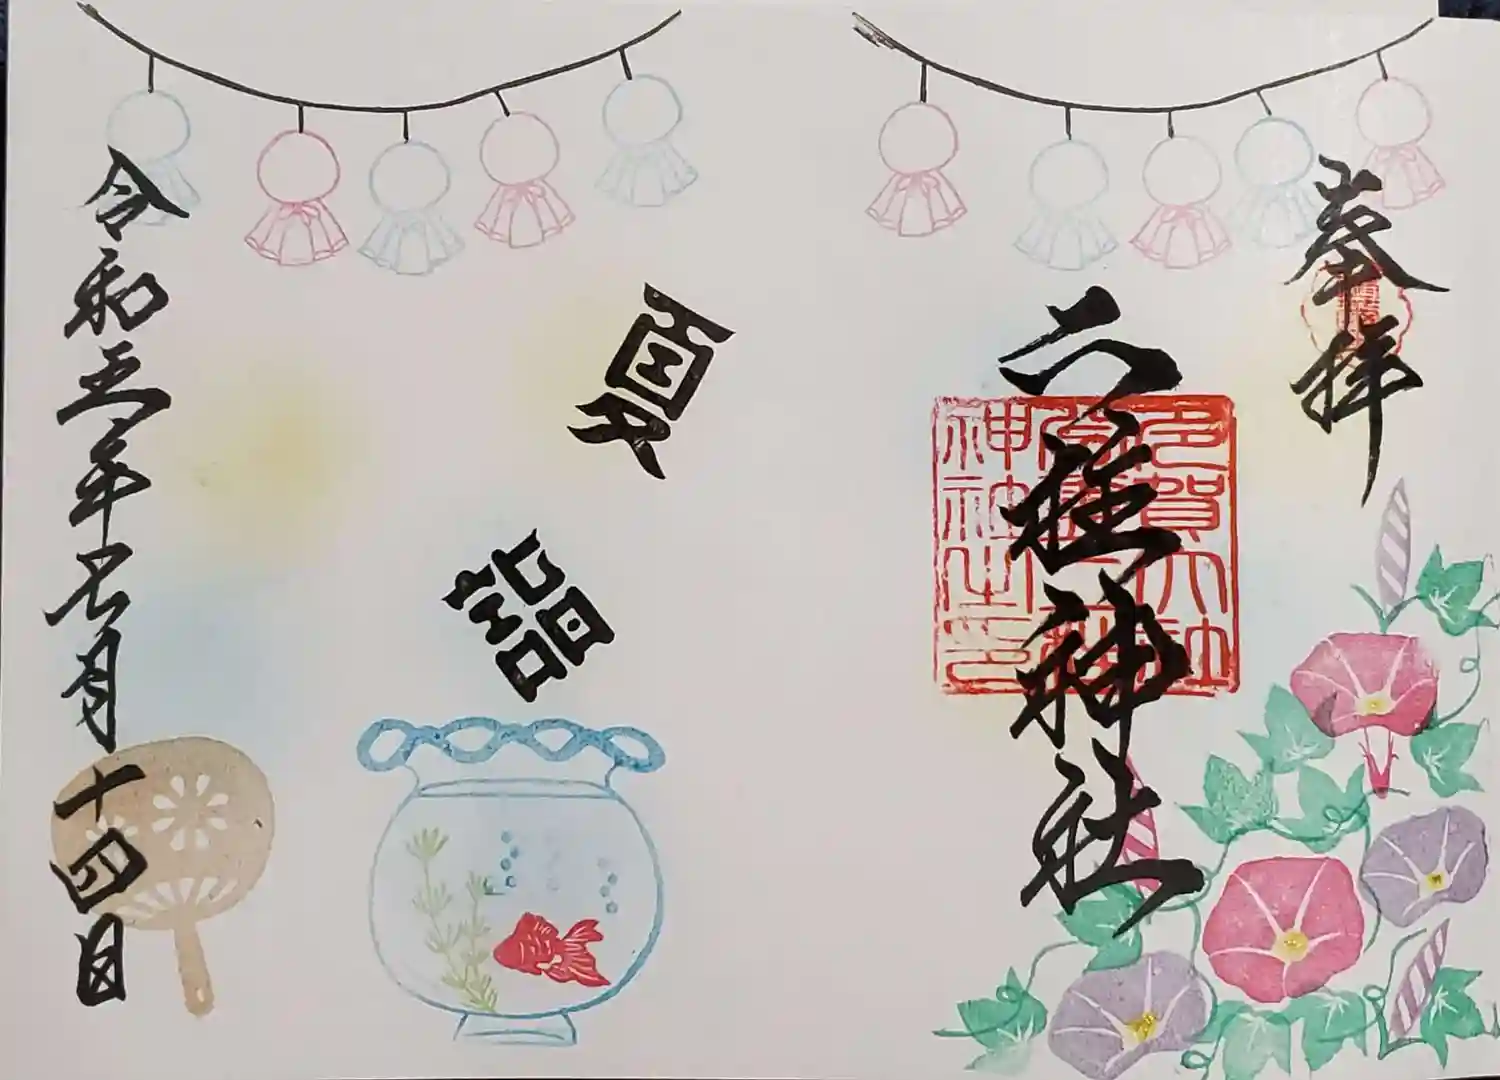 奉拝
六柱神社
多賀大社
神社之印
夏詣
令和五年七月十四日